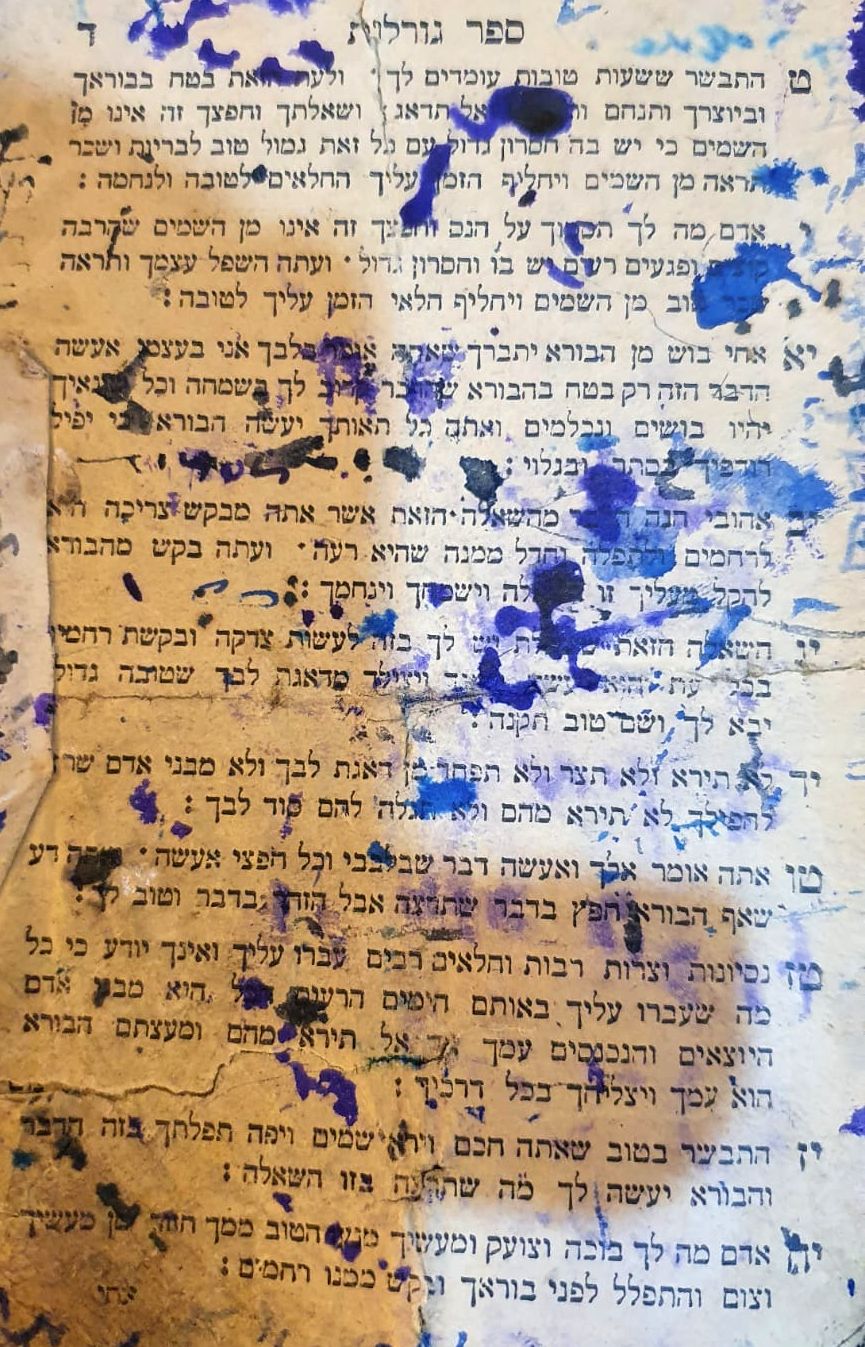 ספר גורלות ד
ט התבשר ששעות טובות עומדים לך · ולעת הזאת בטח בבוראך
וביוצרך ותנחם אל תדאג ושאלתך וחפצך זה אינו מן
השמים כי יש בה חסרון גדול עם כל זאת גמול טוב לבריות ושכר
תראה מן השמים ויחליף הזמן עליך החלאים לטובה ולנחמה :
י אדם מה לך תסמוך על הנס וחפצך זה אינו מן השמים שהרבה
קוצים ופגעים רעים יש בו וחסרון גדול · ועתה השפל עצמך ותראה
שכר טוב מן השמים ויחליף חלאי הזמן עליך לטובה :
יא אחי בוש מן הבורא יתברך שאתה אומר בלבך אני בעצמי אעשה
הדבר הזה רק בטח בהבורא לך בשמחה וכל שונאיך
יהיו בושים ונכלמים ואתה כל תאותך יעשה הבורא כי יפיל
רודפיך בסתר ובגלוי :
יב אהובי הנה מהשאלה הזאת אשר אתה מבקש צריכה היא
לרחמים ולתפלה וחדל ממנה שהיא רעה · ועתה בקש מהבורא
להקל מעליך זו וישמחך וינחמך :
יג השאלה הזאת יש לך בזה לעשות צדקה ובקשת רחמים
בכל עת והוא ויצילך מדאגת לבך שטובה גדול
יבא לך ושם טוב תקנה :
יד לא תירא ולא תצר ולא תפחד מן דאגת לבך ולא מבני אדם
להפילך לא תירא מהם ולא תגלה להם סוד לבך :
טו אתה אומר אלך ואעשה דבר שבלבבי וכל חפצי אעשה · דע
שאף הבורא חפץ בדבר שתרצה אבל הזהר בדבר וטוב לך :
טז נסיונות וצרות רבות וחלאים רבים עברו עליך ואינך יודע כי כל
מה שעברו עליך באותם הימים הרעים הכל הוא מבני אדם
היוצאים והנכנסים עמך אל תירא מהם ומעצתם הבורא
הוא עמך ויצליחך בכל דרכיך :
יז התבשר בטוב שאתה חכם וירא שמים ויפה תפלתך בזה הדבר
והבורא יעשה לך מה שתרצה בזו השאלה :
יח אדם מה לך בוכה וצועק ומעשיך הטוב ממך מן מעשיך
וצום והתפלל לפני בוראך ובקש ממנו רחמים :
אחי